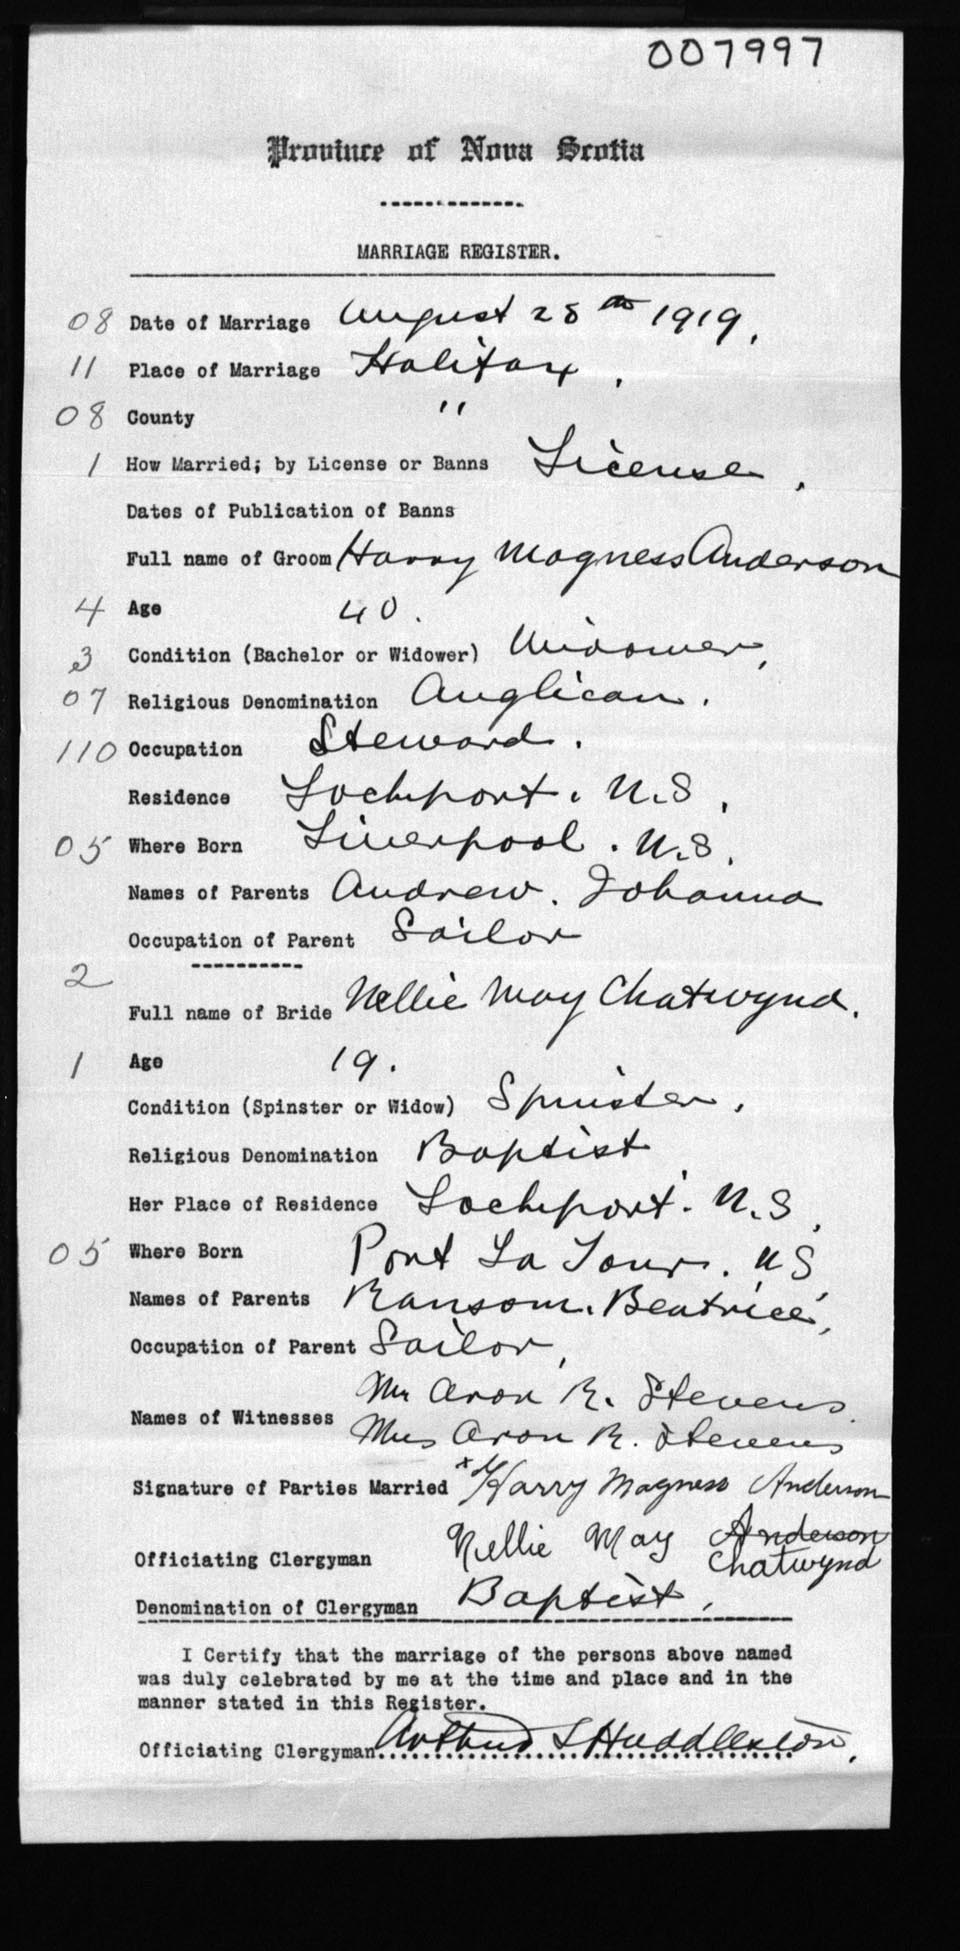 007997
Province of Nova Scotia
MARRIAGE REGISTER.
08 Date of Marriage August 28th 1919.
11 Place of Marriage Halifax.
08 County "
1 How Married; by License or Banns License.
Dates of Publication of Banns
Full name of Groom Harry Magness Anderson
4 Age 40.
3 Condition (Bachelor or Widower) Widower,
07 Religious Denomination Anglican.
110 Occupation Steward.
Residence Lockeport. N.S.
05 Where Born Liverpool. N.S.
Names of Parents Andrew. Johanna
Occupation of Parent Sailor
2
Full name of Bride Nellie May Chatwynd.
1 Age 19.
Condition (Spinster or Widow) Spinster,
Religious Denomination Baptist
Her Place of Residence Lockeport. N.S,
05 Where Born Port La Tour. N S
Names of Parents Ransom. Beatrice,
Occupation of Parent Sailor,
Names of Witnesses Mr Aron R. Stevens
Mrs Aron R. Stevens
Signature of Parties Married x Harry Magness Anderson
Nellie May Anderson
Chatwynd
Officiating Clergyman
Denomination of Clergyman Baptist,
I Certify that the marriage of the persons above named
was duly celebrated by me at the time and place and in the
manner stated in this Register.
Officiating Clergyman Arthur S Huddleston,